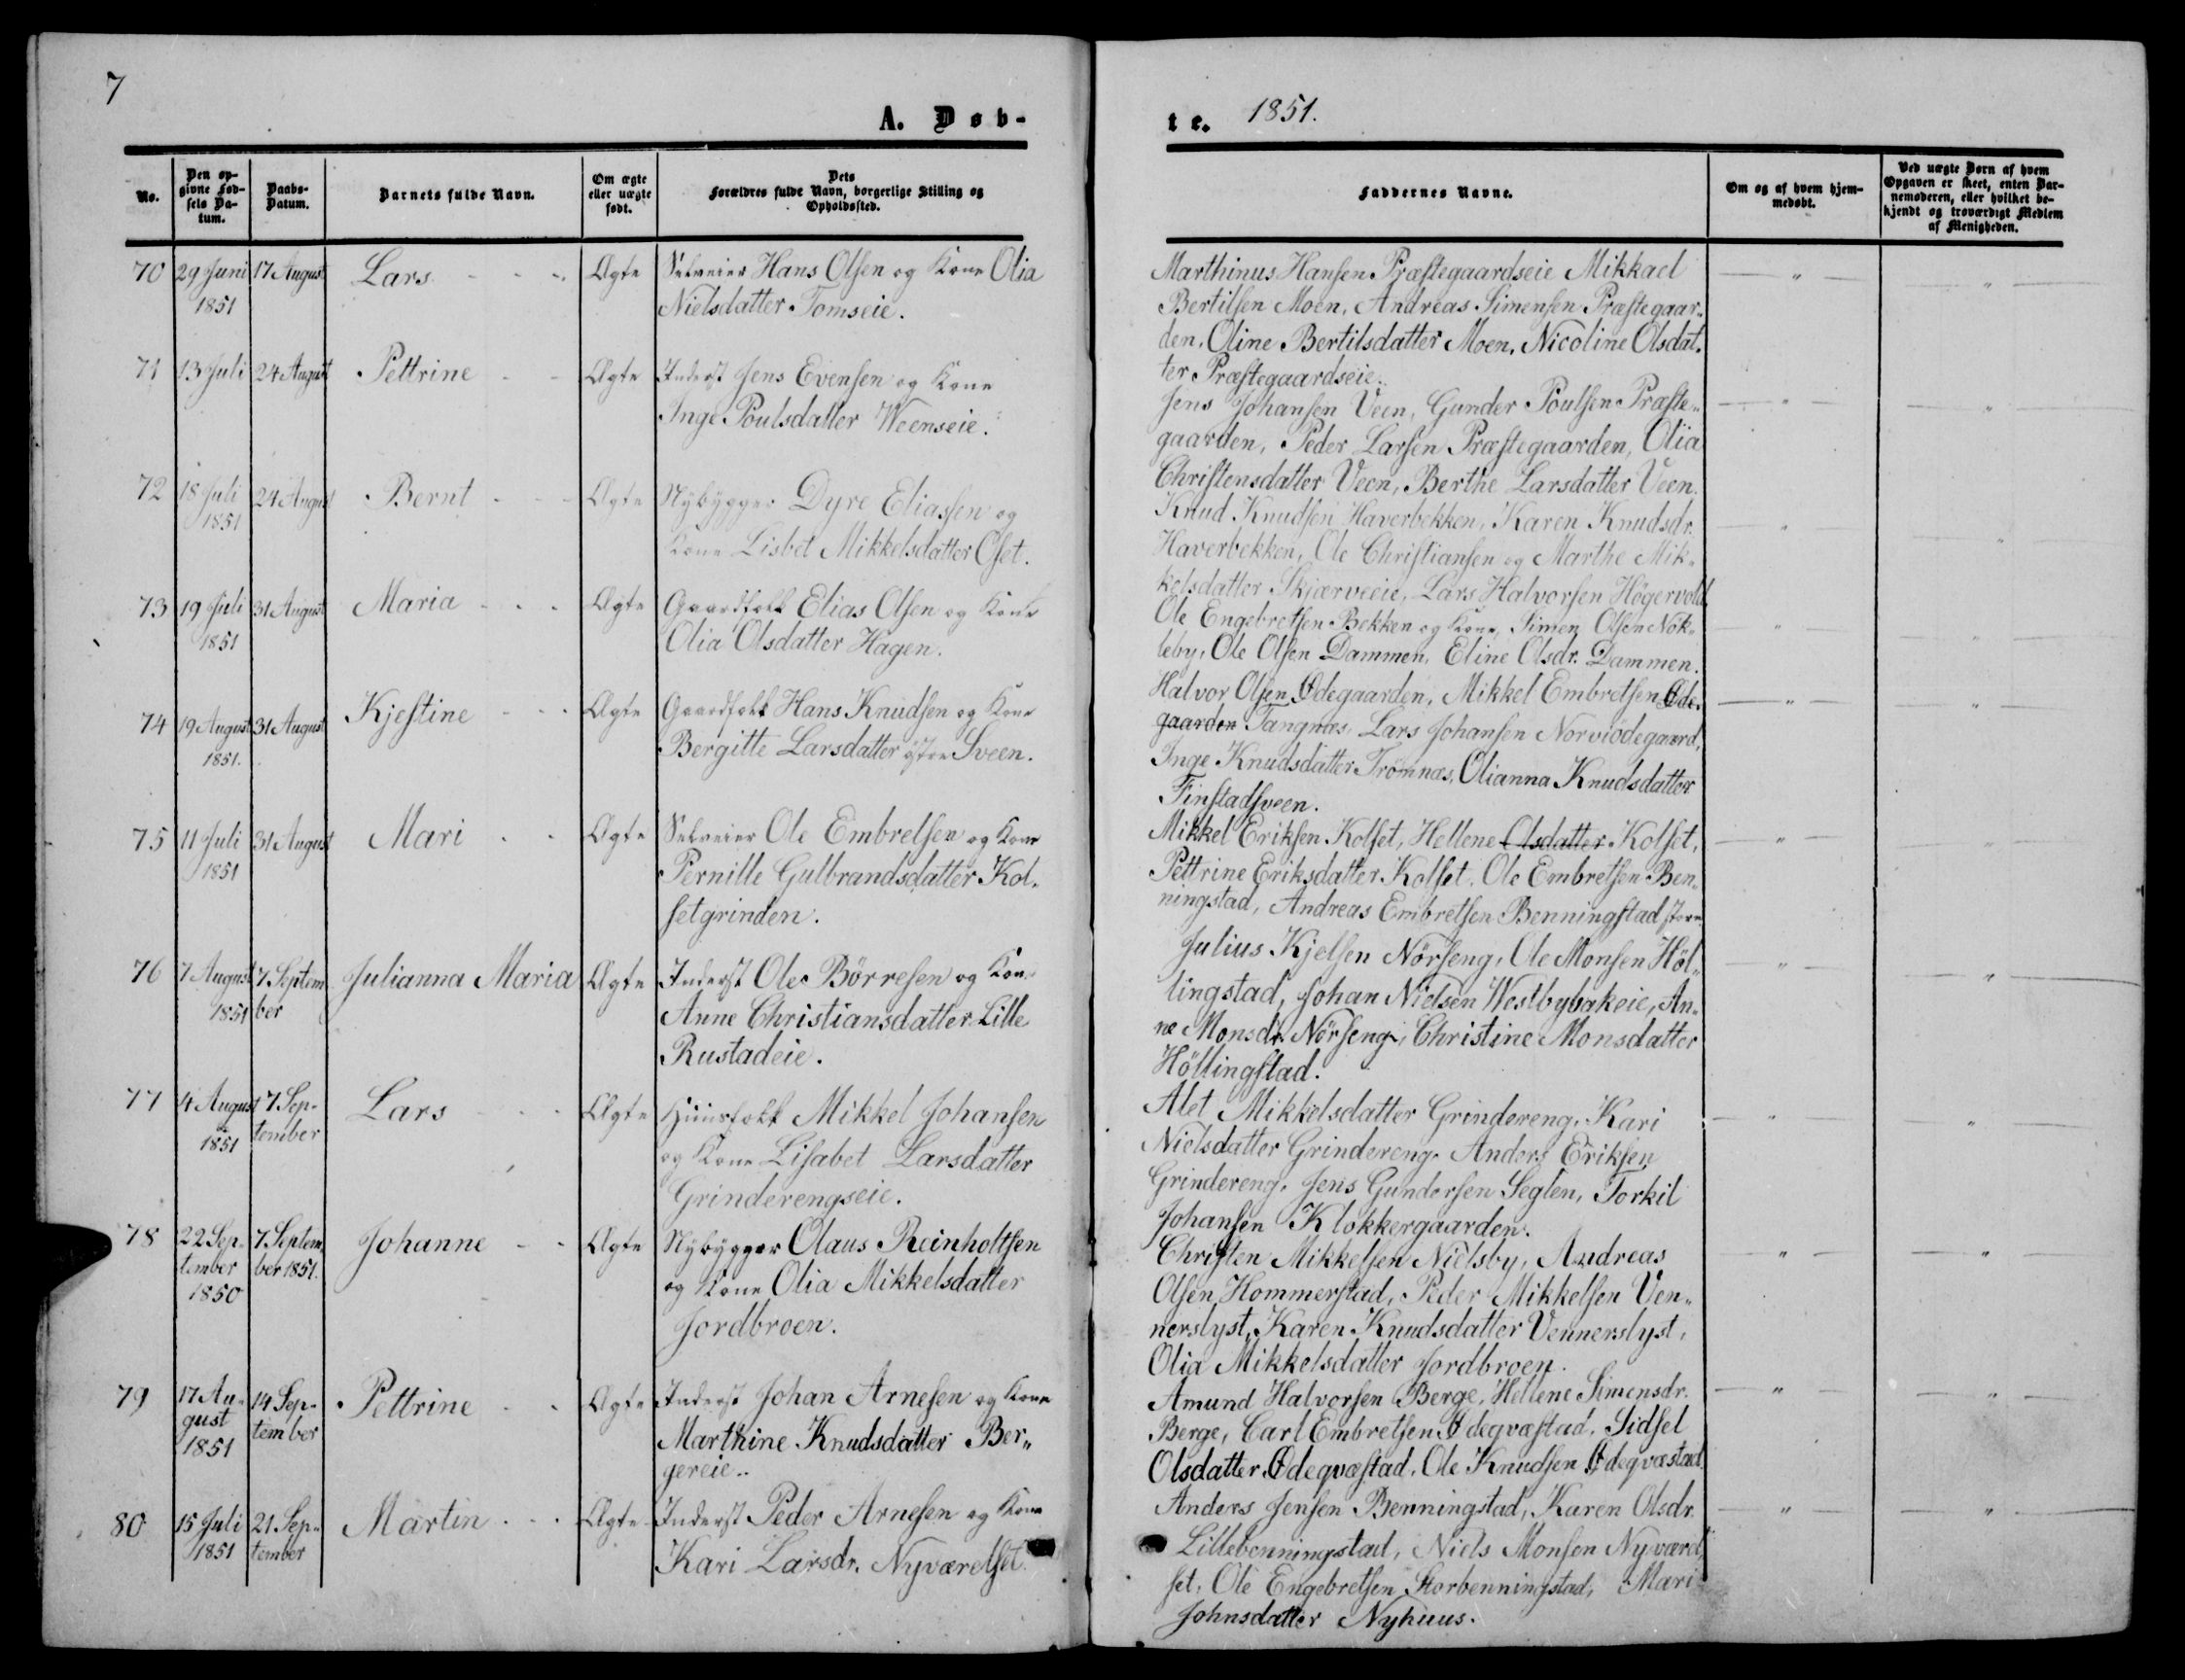 7
A. Døb-
te. 1851.
No.
Den op-
givne Fød-
sels Da-
tum.
Daabs-
Datum.
Barnets fulde Navn.
Om ægte
eller uægte
født.
Dets
Forældres fulde Navn, borgerlige Stilling og
Opholdssted.
Faddernes Navne.
Om og af hvem hjem-
medøbt.
Ved uægte Børn af hvem
Opgaven er skeet, enten Bar-
nemoderen, eller hvilket be-
kjendt og troværdigt Medlem
af Menigheden.
70 29 Juni 17 August Lars Ægte Selveier Hans Olsen og Kone Olia
1851 Nielsdatter Tomseie.
Marthinus Hansen Præstegaardseie Mikkael
Bertilsen Moen, Andreas Simensen Præstegaar-
den, Oline Bertilsdatter Moen, Nicoline Olsdat-
ter Præstegaardseie.
71 13 Juli 24 August Pettrine Ægte Inderst Jens Evensen og Kone
Inge Poulsdatter Weenseie.
Jens Johansen Veen, Gunder Poulsen Præste-
gaarden, Peder Larsen Præstegaarden, Olia
Christensdatter Veen, Berthe Larsdatter Veen.
72 18 Juli 24 August Bernt Ægte Nybygger Dyre Eliassen og
1851 Kone Lisbet Mikkelsdatter Oset.
Knud Knudsen Haverbekken, Karen Knudsdr.
Haverbekken, Ole Christiansen og Marthe Mik-
kelsdatter Skjærveeie, Lars Halvorsen Högervold
73 19 Juli 31 August Maria Ægte Gaardfolk Elias Olsen og Kone
1851 Olia Olsdatter Hagen.
Ole Engebretsen Bekken og Kone, Simen Olsen Nök-
leby, Ole Olsen Dammen, Eline Olsdr. Dammen.
74 19 August 31 August Kjestine Ægte Gaardfolk Hans Knudsen og Kone
1851. Bergitte Larsdatter östre Sveen.
Halvor Olsen Ødegaarden, Mikkel Embretsen Øde-
gaarden Tangnæs, Lars Johansen Norviödegaard,
Inge Knudsdatter Trömnæs, Olianna Knudsdatter
Finstadsveen.
75 11 Juli 31 August Mari Ægte Selveier Ole Embretsen og Kone
1851 Pernille Gulbrandsdatter Kol-
setgrinden.
Mikkel Eriksen Kolset, Hellene Olsdatter Kolset,
Pettrine Eriksdatter Kolset, Ole Embretsen Ben-
ningstad, Andreas Embretsen Benningstad store
76 7 August 7 Septem Julianna Maria Ægte Inderst Ole Börresen og Kone
1851 ber Anne Christiansdatter Lille
Rustadeie.
Julius Kjelsen Nörseng, Ole Monsen Höl-
lingstad, Johan Nielsen Westbybakeie, An-
ne Monsdr. Nörseng, Christine Monsdatter
Höllingstad.
77 4 August 7 Sep- Lars Ægte Huusfolk Mikkel Johansen
1851 tember og Kone Lisabet Larsdatter
Grinderengseie.
Alet Mikkelsdatter Grindereng, Kari
Nielsdatter Grindereng, Anders Eriksen
Grindereng, Jens Gundersen Seglen, Torkil
Johansen Klokkergaarden.
78 22 Sep- 7 Septem Johanne Ægte Nybygger Olaus Reinholtsen
tember ber 1851. og Kone Olia Mikkelsdatter
1850 Jordbroen.
Christen Mikkelsen Nielsby, Andreas
Olsen Hommerstad, Peder Mikkelsen Ven-
nerslyst, Karen Knudsdatter Vennerslyst,
Olia Mikkelsdatter Jordbroen.
79 17 Au- 14 Sep- Pettrine Ægte Inderst Johan Arnesen og Kone
gust tember Marthine Knudsdatter Ber-
1851 gereie.
Amund Halvorsen Berge, Hellene Simensdr.
Berge, Carl Embretsen Ødegvæstad, Sidsel
Olsdatter Ødegvæstad, Ole Knudsen Ødegvæstad.
80 15 Juli 21 Sep- Martin Ægte Inderst Peder Arnesen og Kone
1851 tember Kari Larsdr. Nyværelset
Anders Jensen Benningstad, Karen Olsdr.
Lillebenningstad, Niels Monsen Nyværel-
set, Ole Engebretsen Storbenningstad, Mari
Johnsdatter Nyhuus.